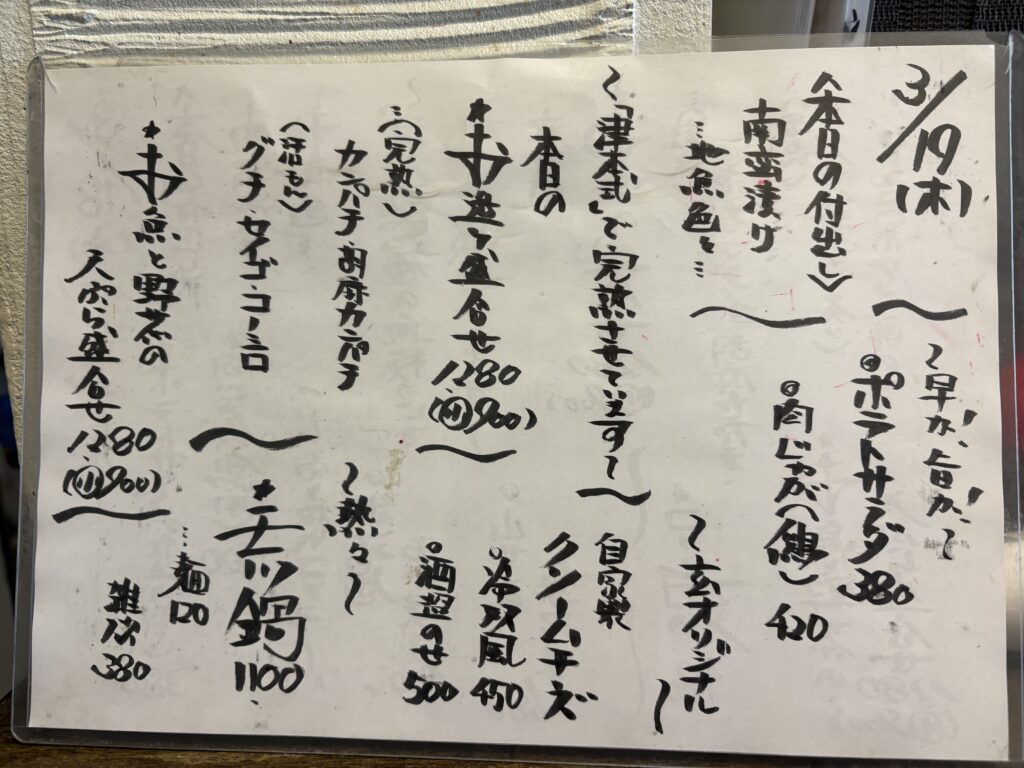 3/19(木)
〈本日の付出し〉
南蛮漬け
…地魚色々…
〜「津本式」で完熟させています〜
本日の
*お造り盛合せ
1280
(小900)
…〈完熟〉
カンパチ・お腐カンパチ
〈活もん〉
グチ・セイゴ・コーミロ
*お魚と野菜の
天ぷら盛合せ
1280
(小900)
〜早か!、旨か!〜
◎ポテトサラダ 380
◎肉じゃが(鶏) 420
〜玄オリジナル〜
自家製
クリームチーズ
◎冷奴風 450
◎酒盗のせ 500
〜熱々〜
*チリ鍋
1100
…麺120
雑炊380